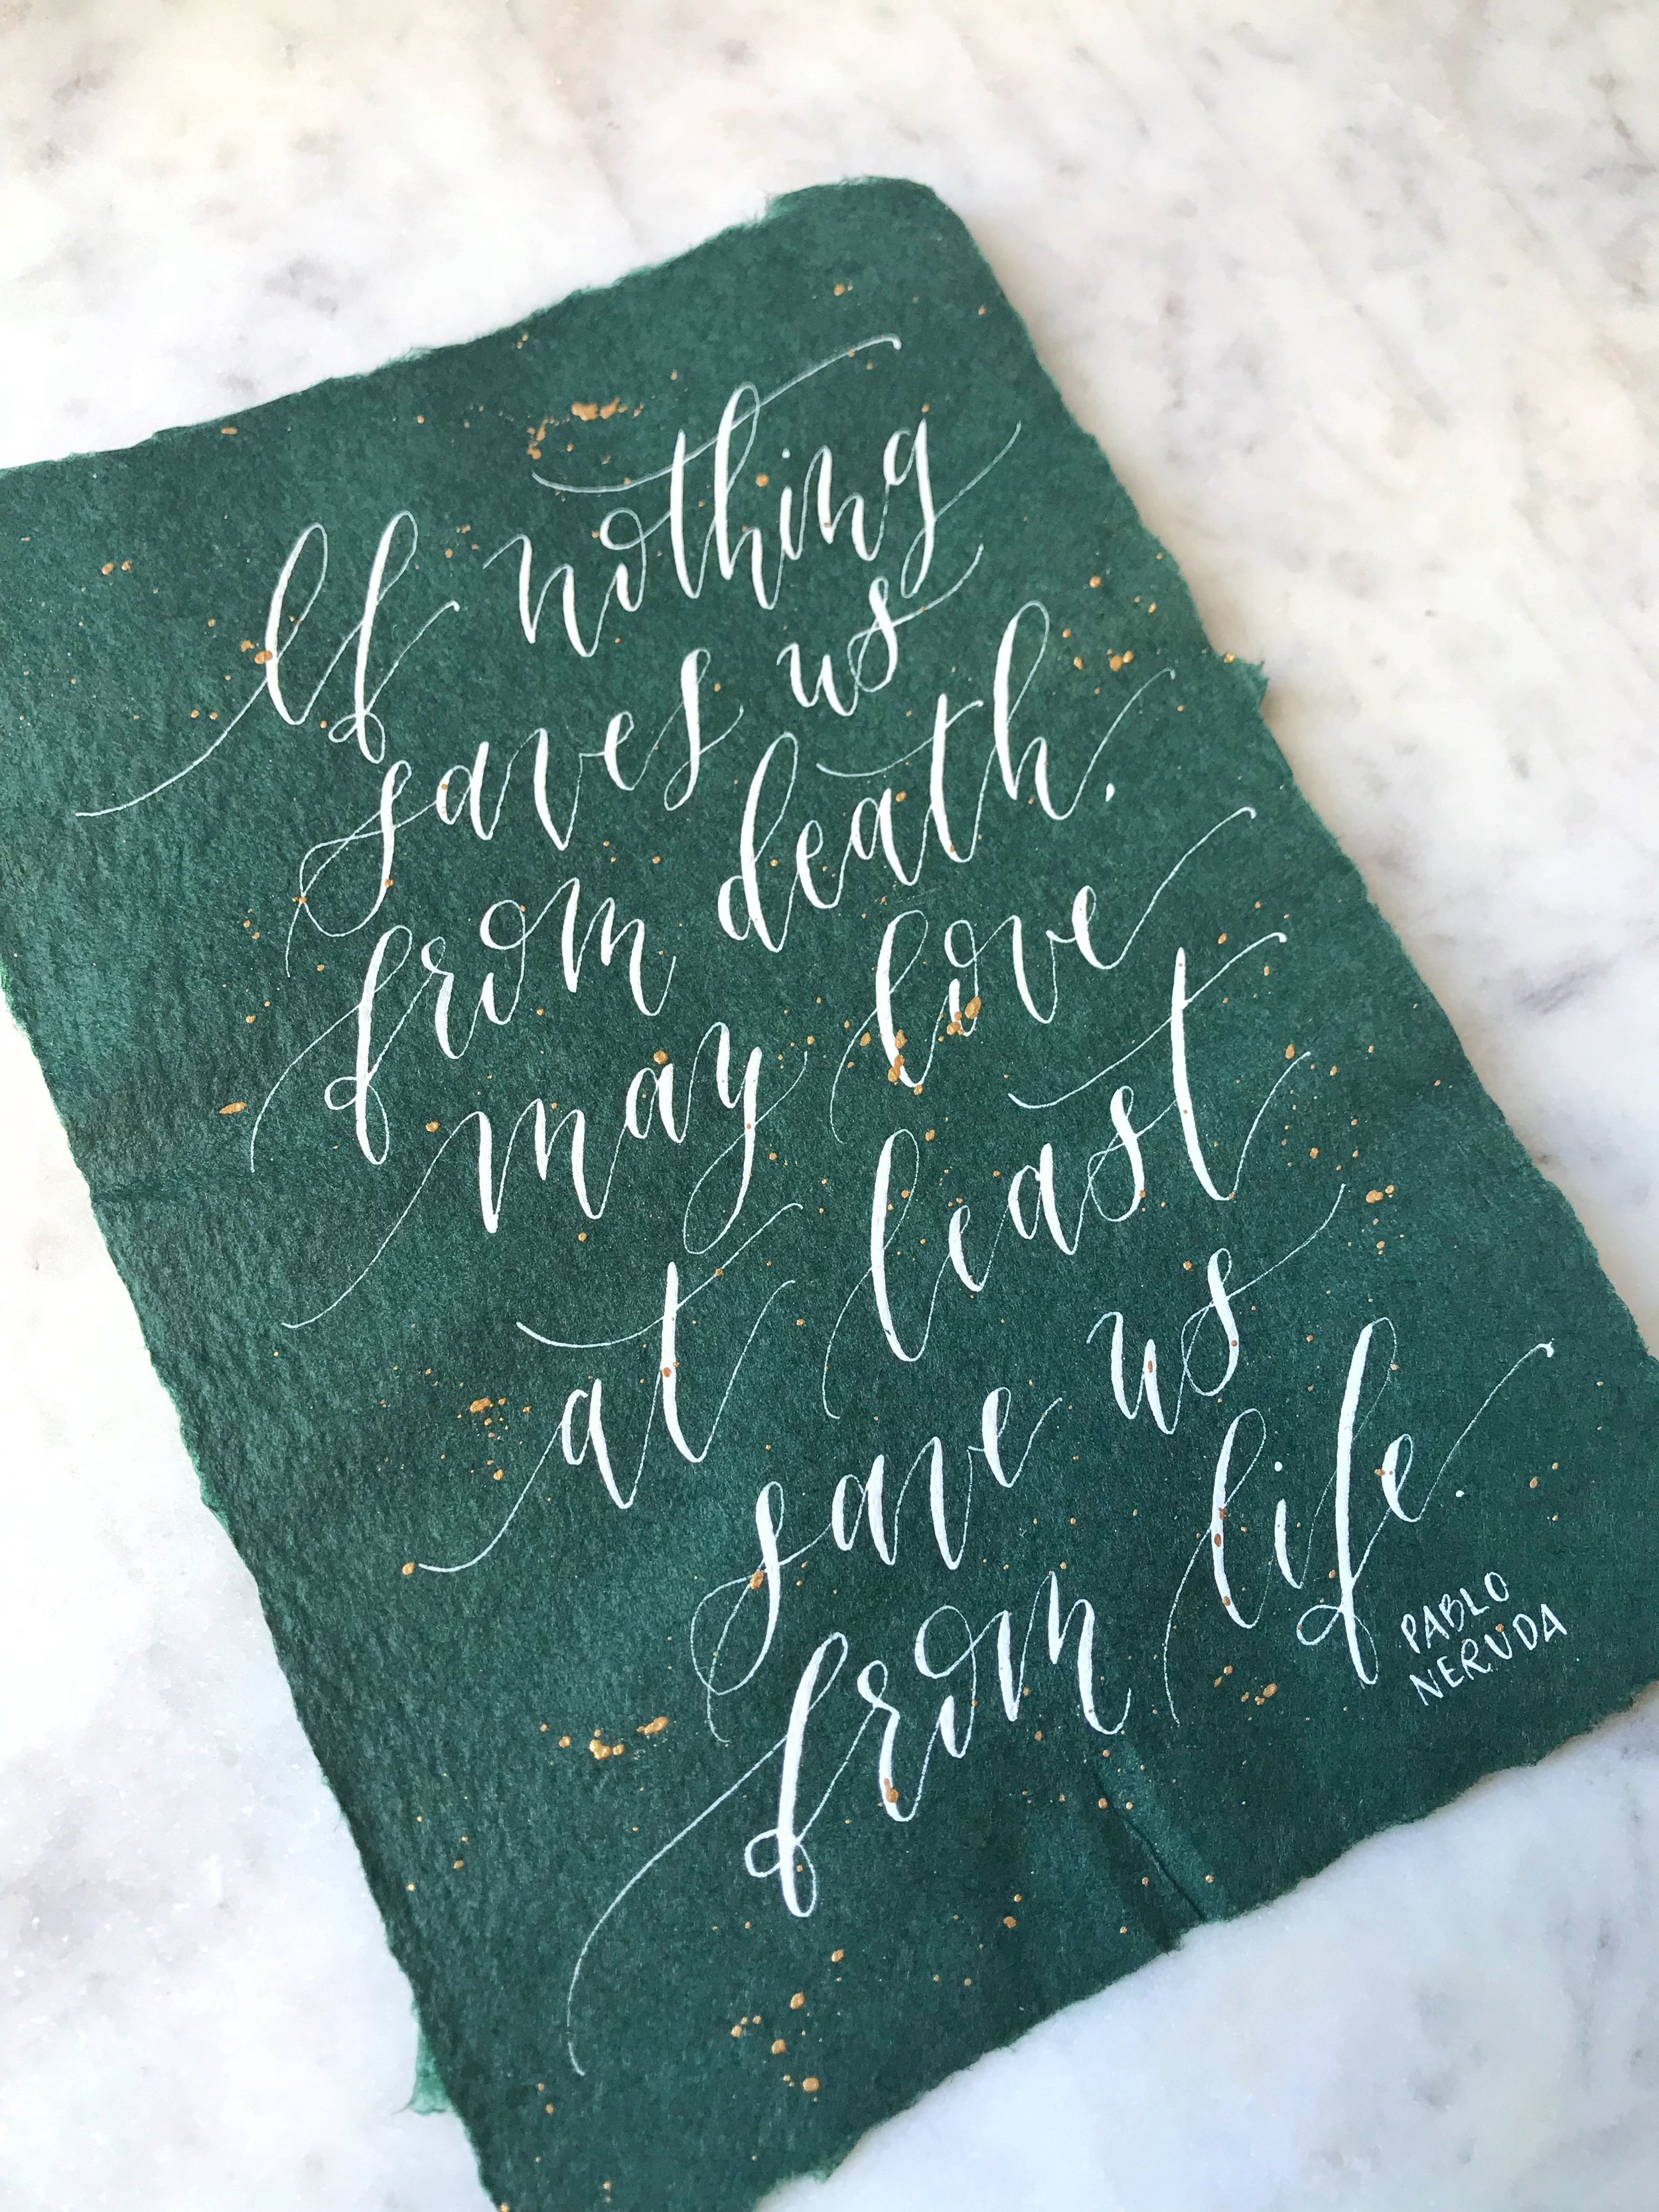 If nothing
saves us
from death.
may love
at least
save us
from life.
PABLO
NERUDA